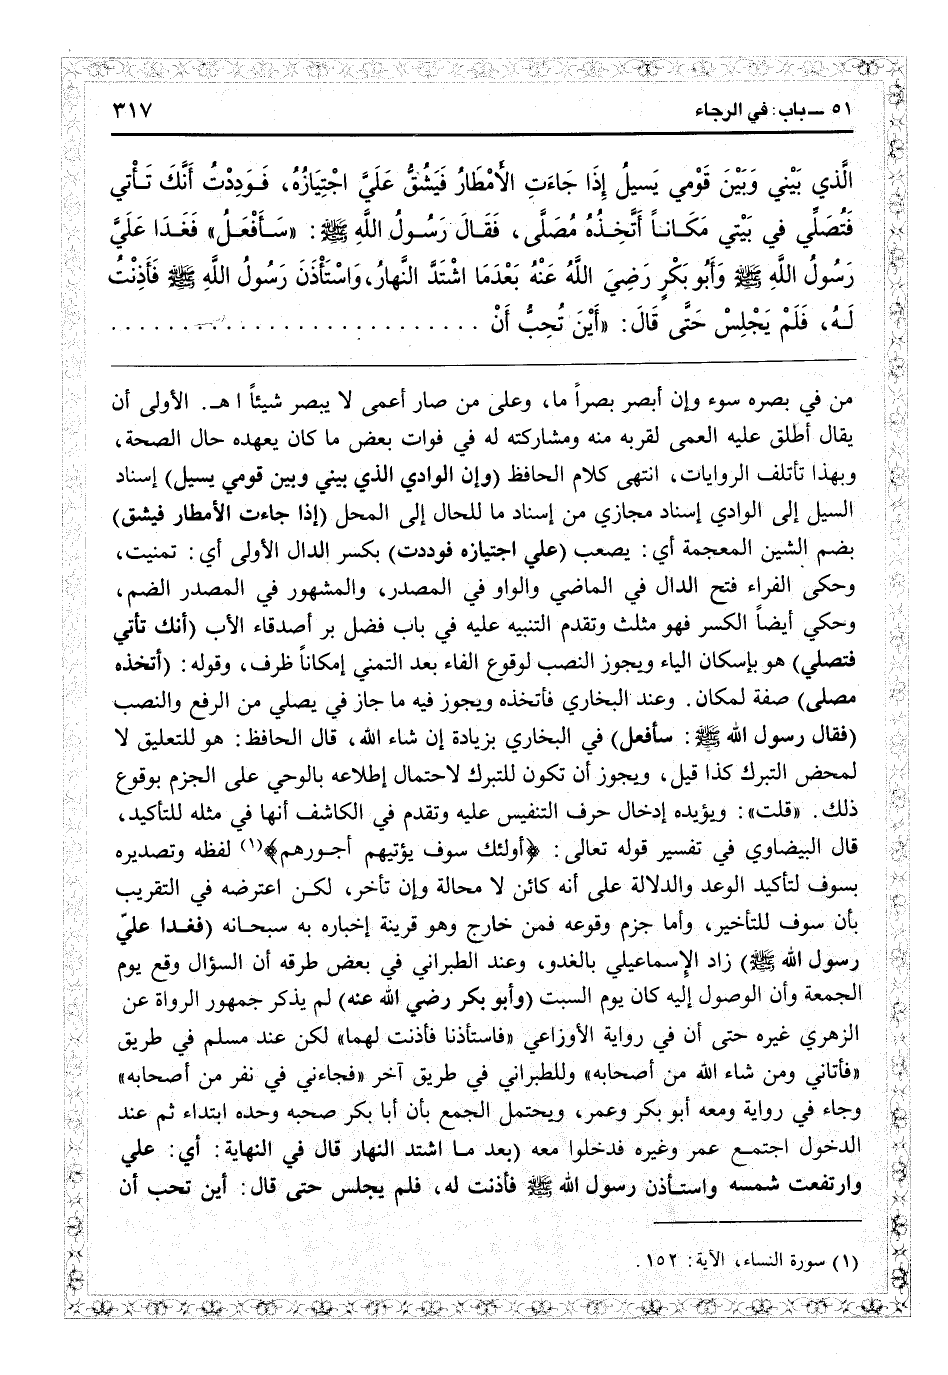 ٥١ ــ باب: في الرجاء ٣١٧
الَّذِي بَيْنِي وَبَيْنَ قَوْمِي يَسِيلُ إِذَا جَاءَتِ الأَمْطَارُ فَيَشُقُّ عَلَيَّ اجْتِيَازُهُ، فَوَدِدْتُ أَنَّكَ تَأْتِي
فَتُصَلِّي في بَيْتِي مَكَاناً أَتَّخِذُهُ مُصَلَّى، فَقَالَ رَسُولُ اللَّهِ ﷺ: «سَأَفْعَلُ» فَغَدَا عَلَيَّ
رَسُولُ اللَّهِ ﷺ وَأَبُو بَكْرٍ رَضِيَ اللَّهُ عَنْهُ بَعْدَمَا اشْتَدَّ النَّهارُ، وَاسْتَأْذَنَ رَسُولُ اللَّهِ ﷺ فَأَذِنْتُ
لَهُ، فَلَمْ يَجْلِسْ حَتَّى قَالَ: «أَيْنَ تُحِبُّ أَنْ ..........................
من في بصره سوء وإن أبصر بصراً ما، وعلى من صار أعمى لا يبصر شيئاً اهـ. الأولى أن
يقال أطلق عليه العمى لقربه منه ومشاركته له في فوات بعض ما كان يعهده حال الصحة،
وبهذا تأتلف الروايات، انتهى كلام الحافظ (وإن الوادي الذي بيني وبين قومي يسيل) إسناد
السيل إلى الوادي إسناد مجازي من إسناد ما للحال إلى المحل (إذا جاءت الأمطار فيشق)
بضم الشين المعجمة أي: يصعب (علي اجتيازه فوددت) بكسر الدال الأولى أي: تمنيت،
وحكى الفراء فتح الدال في الماضي والواو في المصدر، والمشهور في المصدر الضم،
وحكي أيضاً الكسر فهو مثلث وتقدم التنبيه عليه في باب فضل بر أصدقاء الأب (أنك تأتي
فتصلي) هو بإسكان الياء ويجوز النصب لوقوع الفاء بعد التمني إمكاناً ظرف، وقوله: (أتخذه
مصلى) صفة لمكان. وعند البخاري فأتخذه ويجوز فيه ما جاز في يصلي من الرفع والنصب
(فقال رسول الله ﷺ: سأفعل) في البخاري بزيادة إن شاء الله، قال الحافظ: هو للتعليق لا
لمحض التبرك كذا قيل، ويجوز أن تكون للتبرك لاحتمال إطلاعه بالوحي على الجزم بوقوع
ذلك. «قلت»: ويؤيده إدخال حرف التنفيس عليه وتقدم في الكاشف أنها في مثله للتأكيد،
قال البيضاوي في تفسير قوله تعالى: ﴿أولئك سوف يؤتيهم أجورهم﴾(١) لفظه وتصديره
بسوف لتأكيد الوعد والدلالة على أنه كائن لا محالة وإن تأخر، لكن اعترضه في التقريب
بأن سوف للتأخير، وأما جزم وقوعه فمن خارج وهو قرينة إخباره به سبحانه (فغدا عليّ
رسول الله ﷺ) زاد الإسماعيلي بالغدو، وعند الطبراني في بعض طرقه أن السؤال وقع يوم
الجمعة وأن الوصول إليه كان يوم السبت (وأبو بكر رضي الله عنه) لم يذكر جمهور الرواة عن
الزهري غيره حتى أن في رواية الأوزاعي «فاستأذنا فأذنت لهما» لكن عند مسلم في طريق
«فأتاني ومن شاء الله من أصحابه» وللطبراني في طريق آخر «فجاءني في نفر من أصحابه»
وجاء في رواية ومعه أبو بكر وعمر، ويحتمل الجمع بأن أبا بكر صحبه وحده ابتداء ثم عند
الدخول اجتمع عمر وغيره فدخلوا معه (بعد ما اشتد النهار قال في النهاية: أي: علي
وارتفعت شمسه واستأذن رسول الله ﷺ فأذنت له، فلم يجلس حتى قال: أين تحب أن
(١) سورة النساء، الآية: ١٥٢.